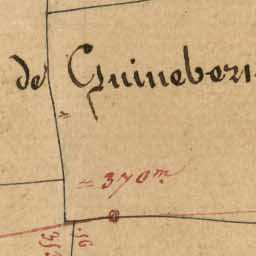 de Guineber
= 370m